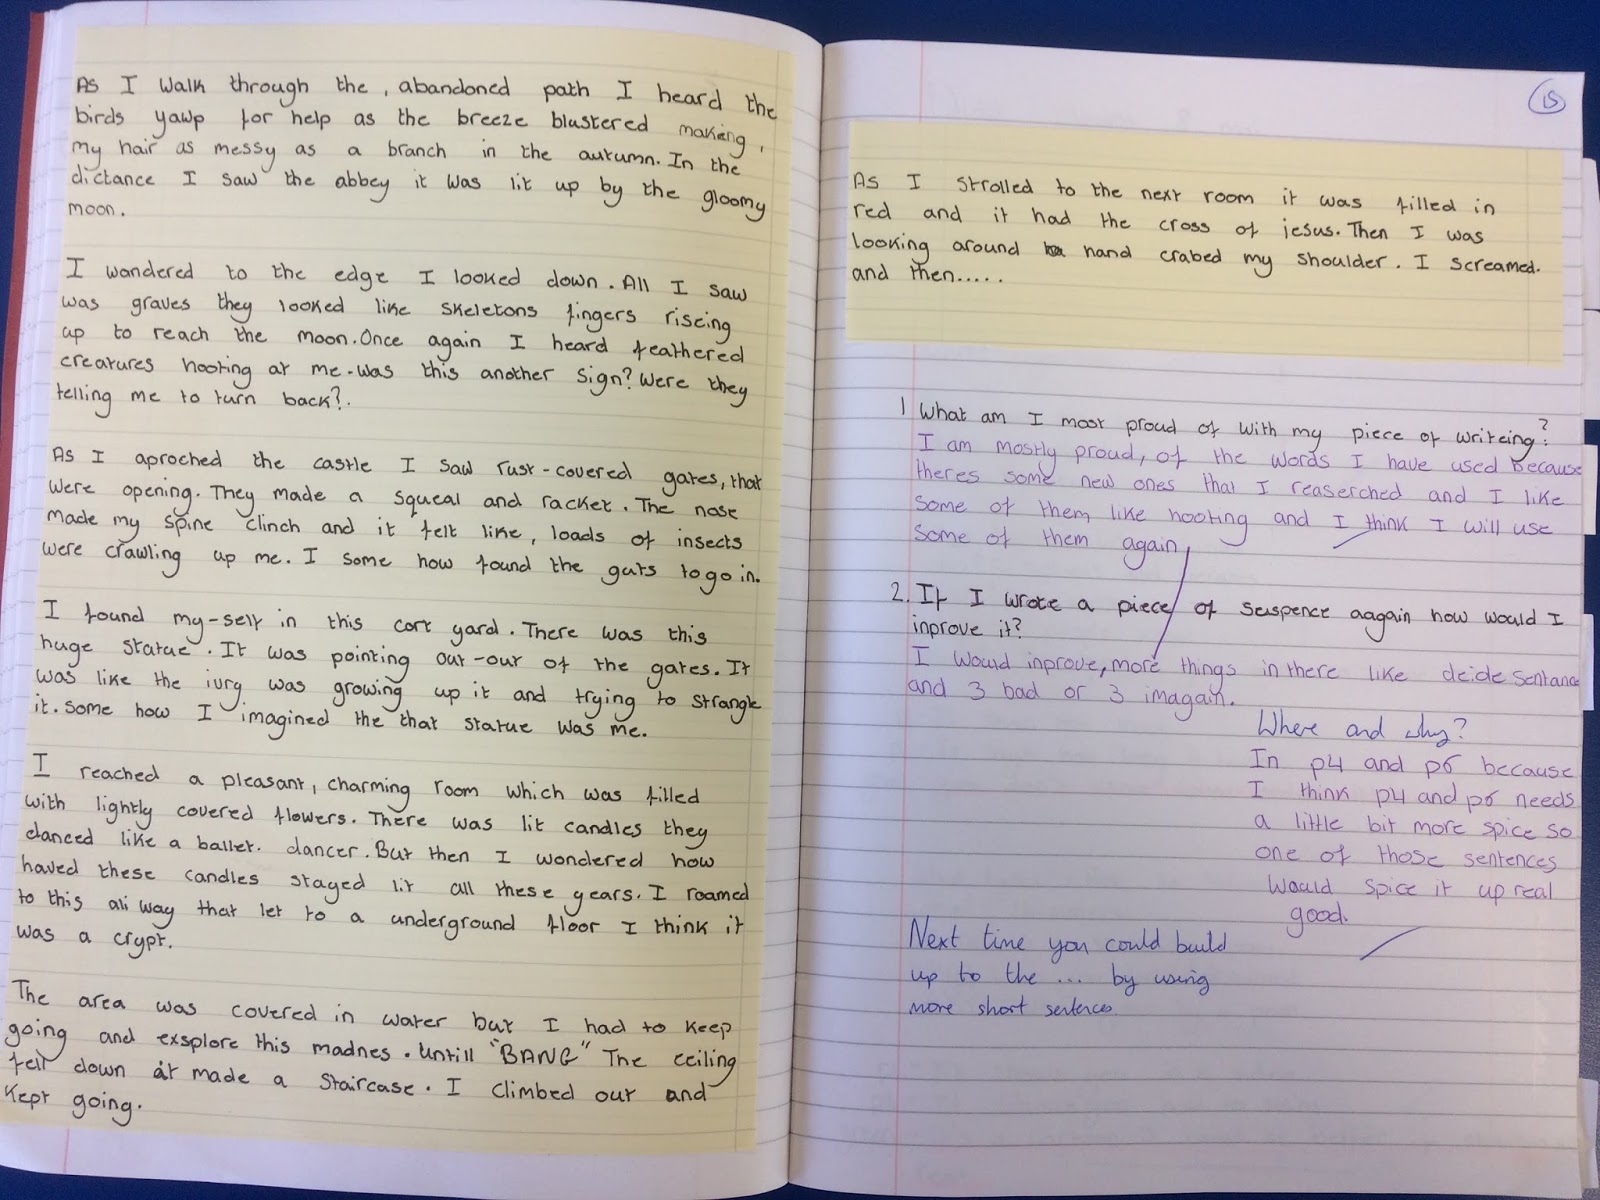 As I walk through the, abandoned path I heard the
birds yawp for help as the breeze blustered makeing,
my hair as messy as a branch in the autumn. In the
dictance I saw the abbey it was lit up by the gloomy
moon.
I wandered to the edge I looked down. All I saw
was graves they looked like skeletons fingers riseing
up to reach the moon. Once again I heard feathered
creatures hooting at me. Was this another sign? Were they
telling me to turn back?.
As I aproched the castle I saw rust-covered gates, that
were opening. They made a squeal and racket. The nose
made my spine clinch and it felt like, loads of insects
were crawling up me. I some how found the guts to go in.
I found my-self in this cort yard. There was this
huge statue. It was pointing out-out of the gates. It
was like the ivry was growing up it and trying to strangle
it. Some how I imagined the that statue was me.
I reached a pleasant, charming room which was filled
with lightly covered flowers. There was lit candles they
danced like a ballet. dancer. But then I wondered how
haved these candles stayed lit all these years. I roamed
to this ali way that let to a underground floor I think it
was a crypt.
The area was covered in water but I had to keep
going and exsplore this madnes. Untill "BANG" The ceiling
fell down it made a staircase. I climbed out and
kept going.
15
As I strolled to the next room it was filled in
red and it had the cross of jesus. Then I was
looking around hand crabed my shoulder. I screamed.
and then.....
1 What am I most proud of with my piece of writeing?
I am mostly proud, of the words I have used because
theres some new ones that I reaserched and I like
some of them like hooting and I think I will use
some of them again
2. If I wrote a piece of suspence aagain how would I
inprove it?
I would inprove, more things in there like deide sentance
and 3 bad or 3 imagain.
Where and why?
In p4 and p6 because
I think p4 and p6 needs
a little bit more spice so
one of those sentences
would spice it up real
good.
Next time you could build
up to the ... by using
more short sentences